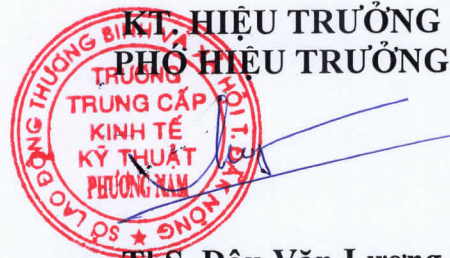 KT. HIỆU TRƯỞNG
PHÓ HIỆU TRƯỞNG
SỞ LAO ĐỘNG THƯƠNG BINH VÀ XÃ HỘI T. ĐẮK NÔNG
TRƯỜNG
TRUNG CẤP
KINH TẾ
KỸ THUẬT
PHƯƠNG NAM
ThS. Đậu Văn Lương